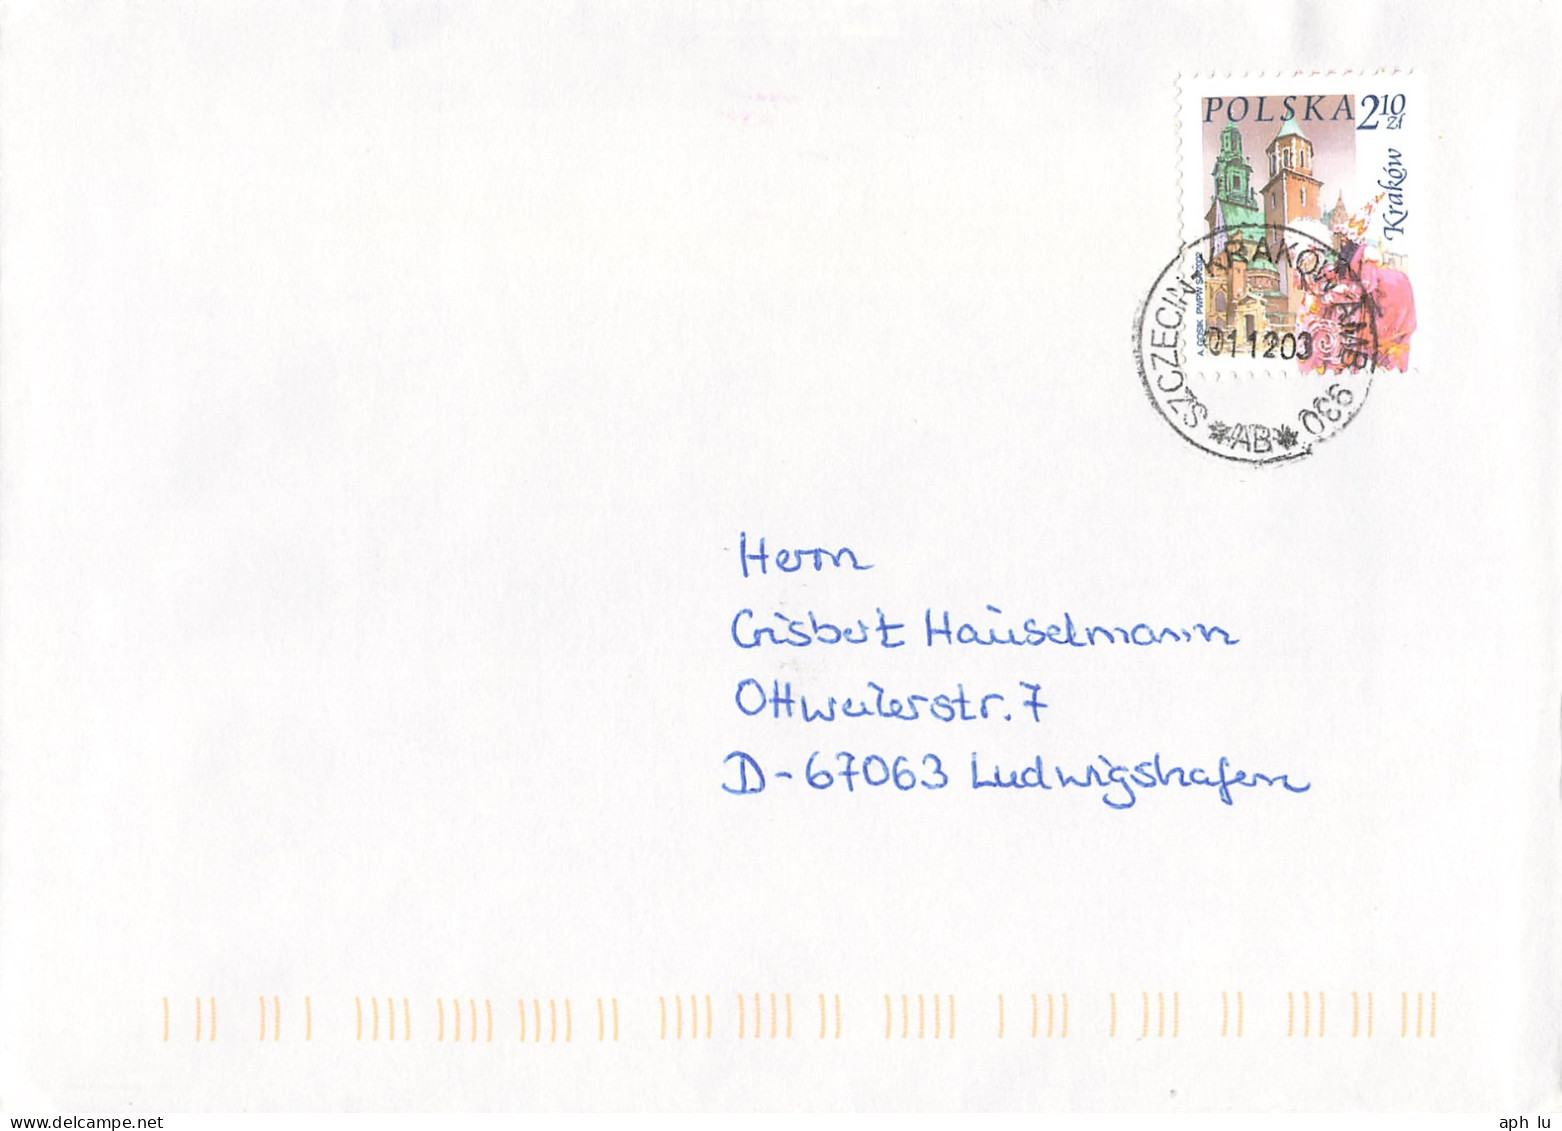 POLSKA 2 10 zł
Kraków
A. GOSIK PWPW S.A. 2002
SZCZECIN-KRAKÓW AMB. 930
011203
*AB*
Herrn
Gisbert Häuselmann
Ottweilerstr. 7
D-67063 Ludwigshafen
aph lu
www.delcampe.net